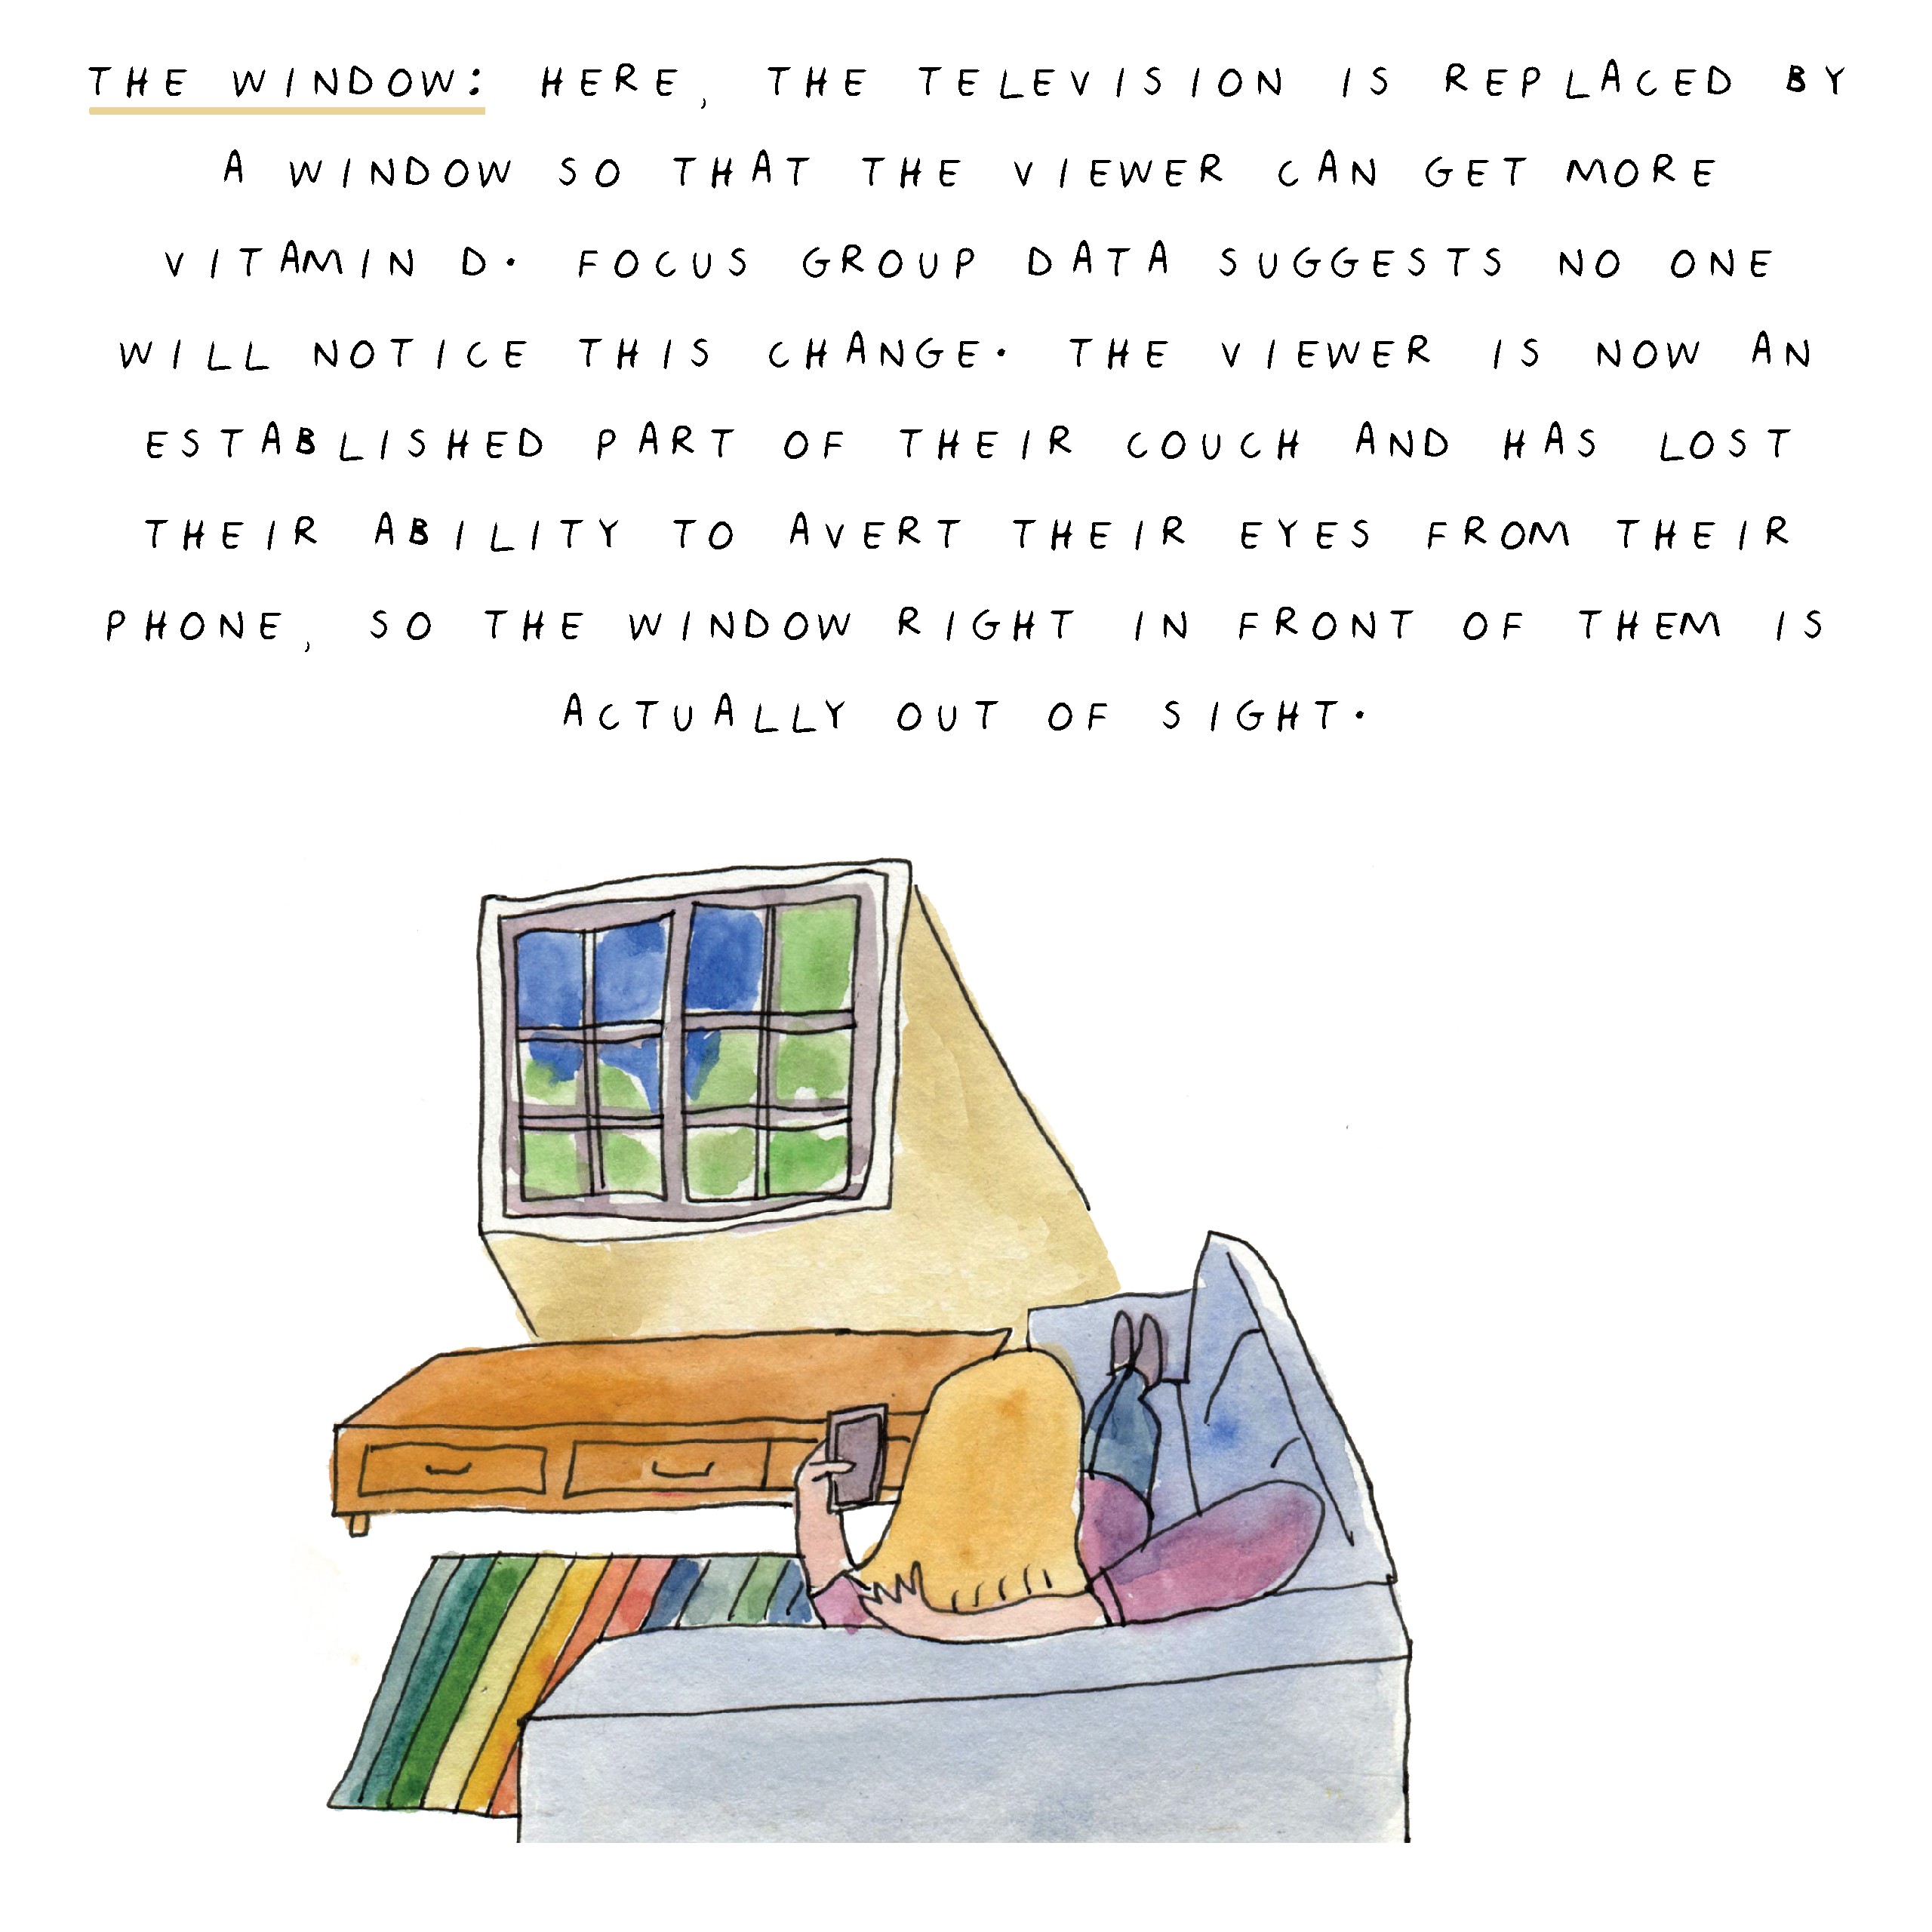 THE WINDOW: HERE, THE TELEVISION IS REPLACED BY
A WINDOW SO THAT THE VIEWER CAN GET MORE
VITAMIN D. FOCUS GROUP DATA SUGGESTS NO ONE
WILL NOTICE THIS CHANGE. THE VIEWER IS NOW AN
ESTABLISHED PART OF THEIR COUCH AND HAS LOST
THEIR ABILITY TO AVERT THEIR EYES FROM THEIR
PHONE, SO THE WINDOW RIGHT IN FRONT OF THEM IS
ACTUALLY OUT OF SIGHT.